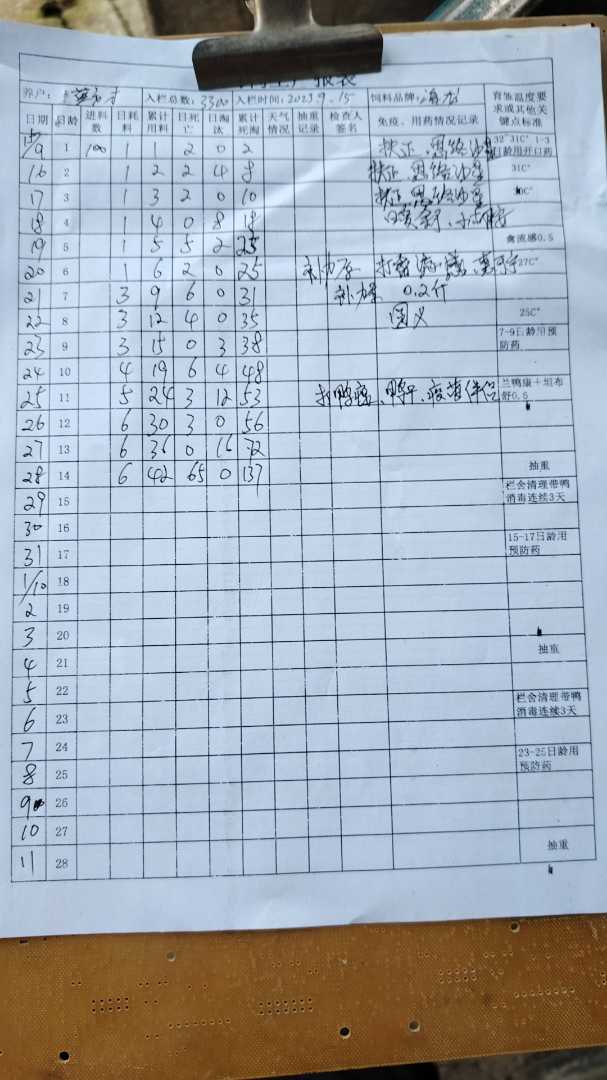 报表
养户: 入栏总数: 3300 入栏时间: 2023 9.15 饲料品牌: 海 育雏温度要求或其他关键点标准
日期 日龄 进料数 日耗料 累计用料 日死亡 日淘汰 累计死淘 天气情况 抽重记录 检查人签名 免疫、用药情况记录
15/9 1 100 1 1 2 0 2 扶正、 32-31C° 1-3日龄用开口药
16 2 1 2 2 4 8 扶正 31C°
17 3 1 3 2 0 10 扶正 C°
18 4 1 4 0 8 18
19 5 1 5 5 2 25 禽流感0.5
20 6 1 6 2 0 25 打 27C°
21 7 3 9 6 0 31 0.2斤
22 8 3 12 4 0 35 25C°
23 9 3 15 0 3 38 7-9日龄用预防药
24 10 4 19 6 4 48
25 11 5 24 3 12 53 打鸭 、鸭 、疫苗 兰鸭康+坦布舒0.5
26 12 6 30 3 0 56
27 13 6 36 0 16 72
28 14 6 42 65 0 137 抽重
29 15 栏舍清理带鸭消毒连续3天
30 16
31 17 15-17日龄用预防药
1/10 18
2 19
3 20
4 21 抽重
5 22
6 23 栏舍清理带鸭消毒连续3天
7 24
8 25 23-25日龄用预防药
9 26
10 27
11 28 抽重